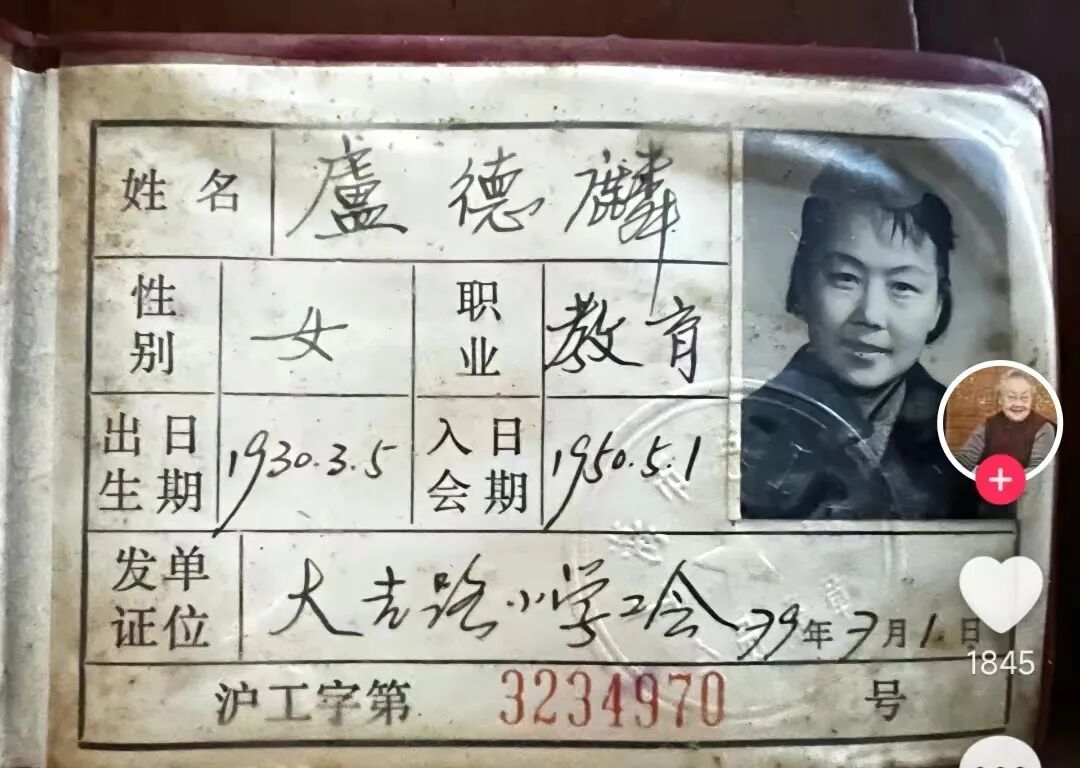 姓名 盧德麟
性别 女 职业 教育
出生日期 1930.3.5 入会日期 1950.5.1
发证单位 大吉路小学工会 79年7月1日
沪工字第 3234970 号
1845